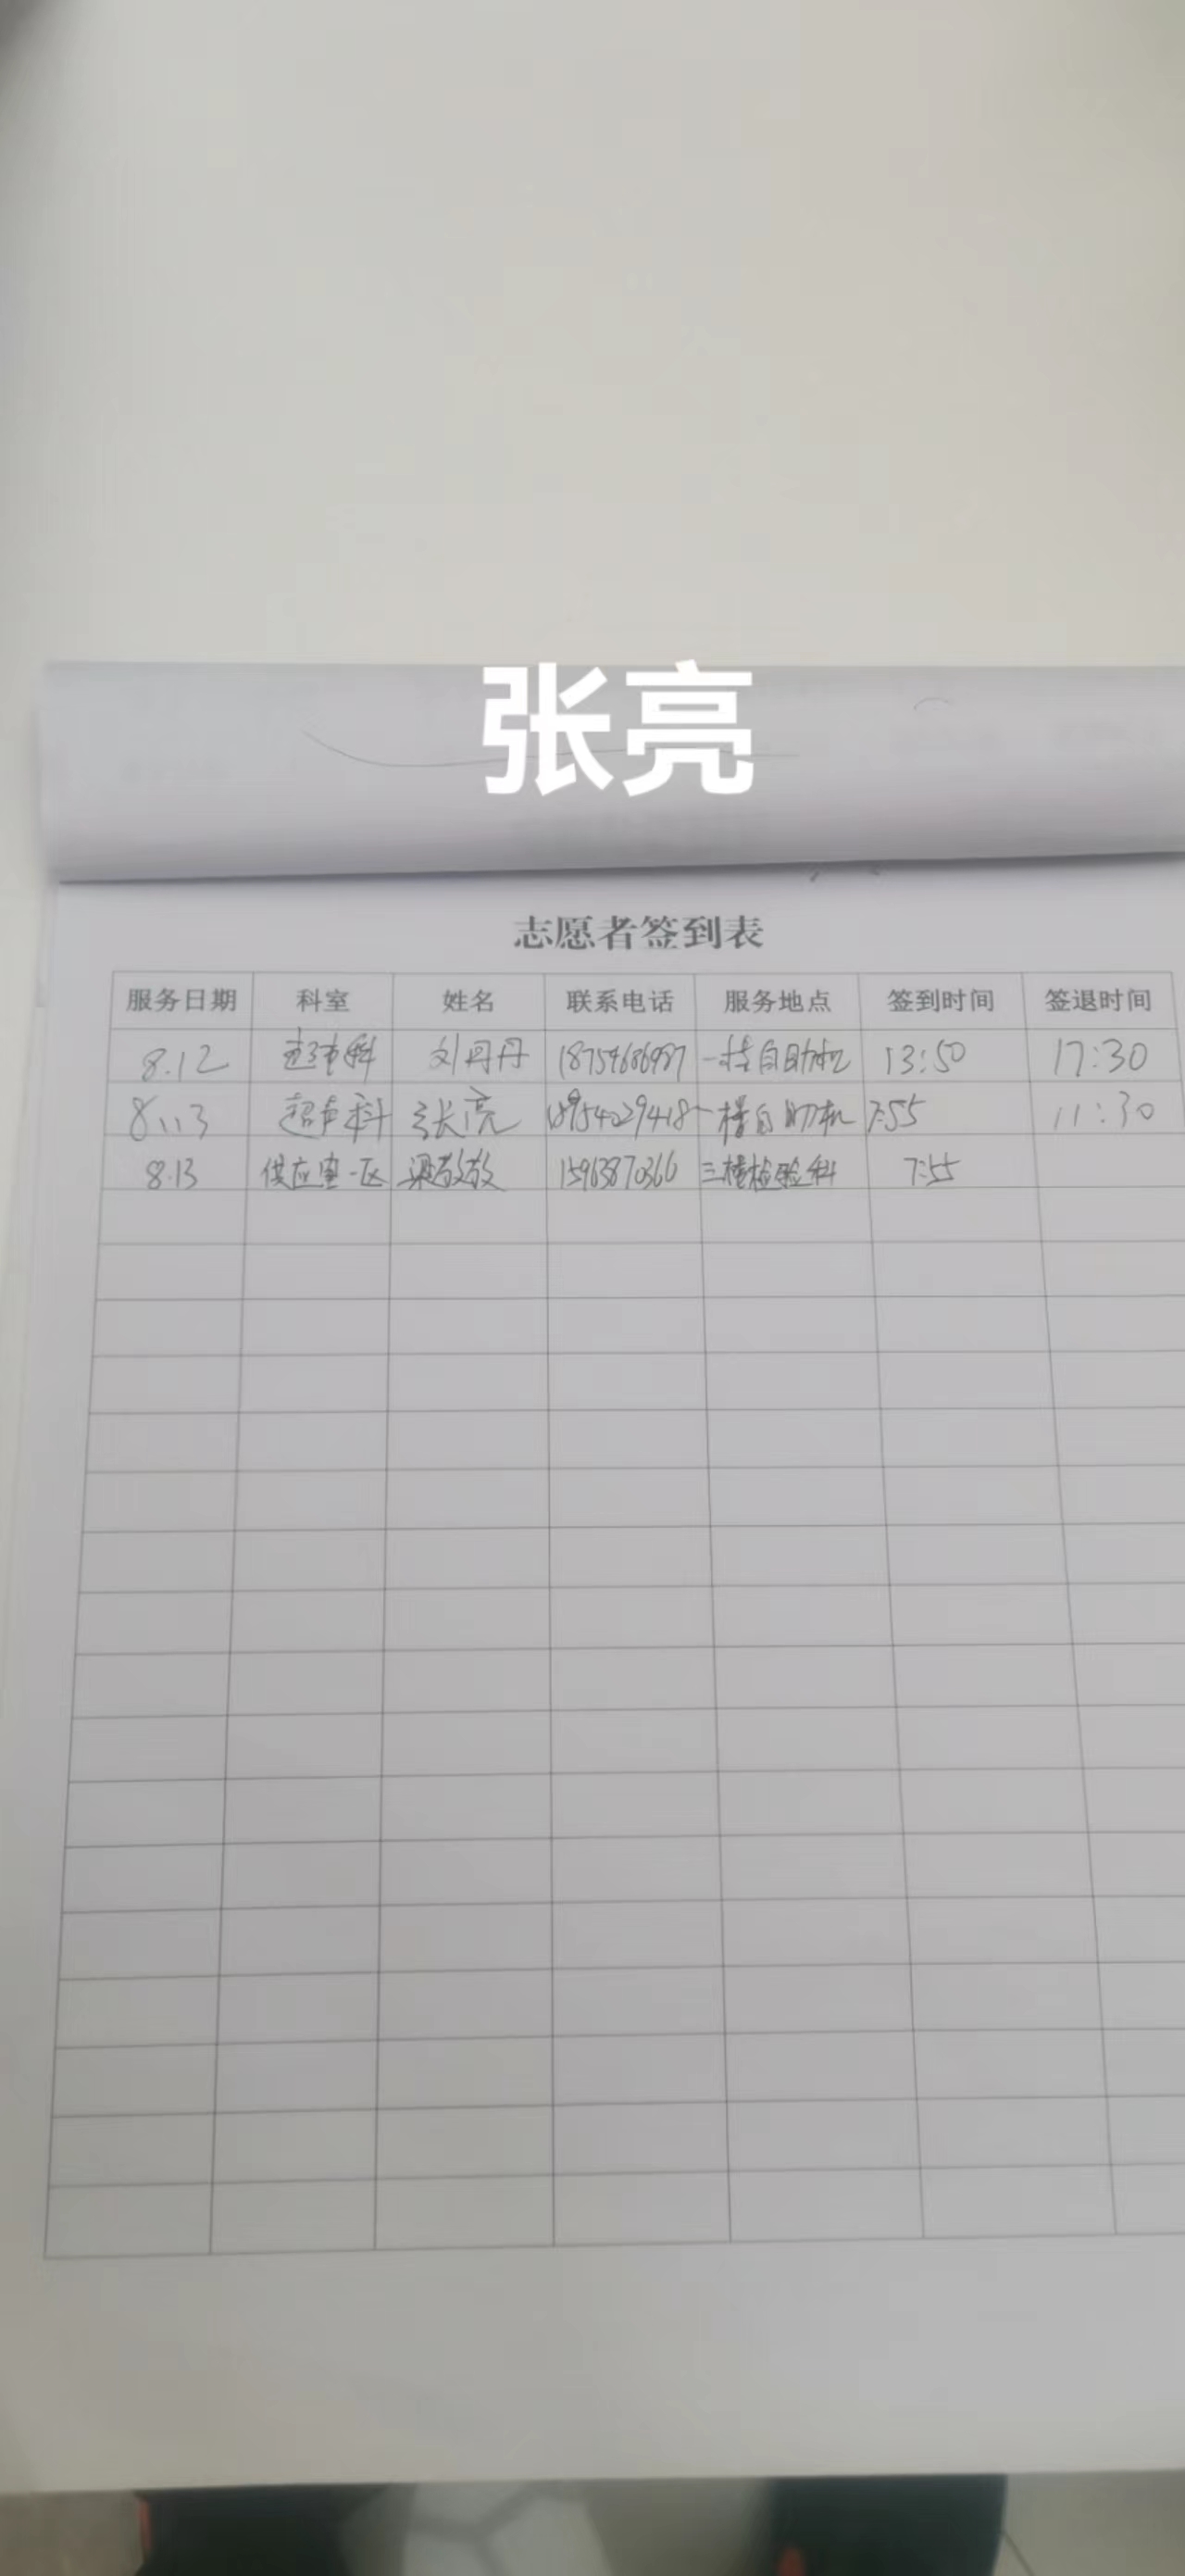 张亮
志愿者签到表
服务日期 科室 姓名 联系电话 服务地点 签到时间 签退时间
8.12 超声科 刘丹丹 18754686987 一楼自助机 13:50 17:30
8.13 超声科 张亮 18954029418 一楼自助机 7:55 11:30
8.13 供应室一区 梁敬敬 15963870366 三楼检验科 7:55